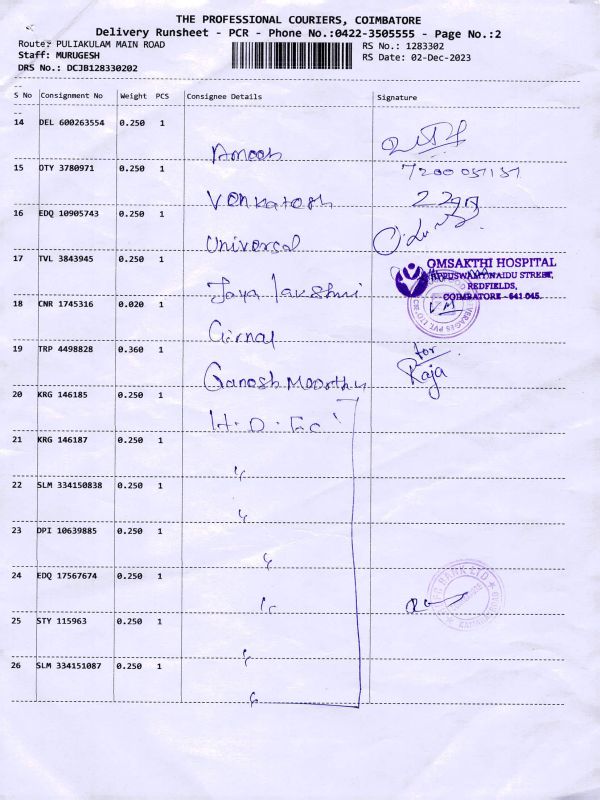 THE PROFESSIONAL COURIERS, COIMBATORE
Delivery Runsheet - PCR - Phone No.:0422-3505555 - Page No.:2
Route: PULIAKULAM MAIN ROAD RS No.: 1283302
Staff: MURUGESH RS Date: 02-Dec-2023
DRS No.: DCJB128330202
S No Consignment No Weight PCS Consignee Details Signature
14 DEL 600263554 0.250 1
Anoosh
15 OTY 3780971 0.250 1
Venkatesh
16 EDQ 10905743 0.250 1
Universal
17 TVL 3843945 0.250 1
OMSAKTHI HOSPITAL
REDFIELDS,
COIMBATORE - 641 045.
Jaya lakshmi
18 CNR 1745316 0.020 1
19 TRP 4498828 0.360 1
for
Raja
Ganesh Moorthy
20 KRG 146185 0.250 1
21 KRG 146187 0.250 1
22 SLM 334150838 0.250 1
23 DPI 10639885 0.250 1
24 EDQ 17567674 0.250 1
25 STY 115963 0.250 1
26 SLM 334151087 0.250 1